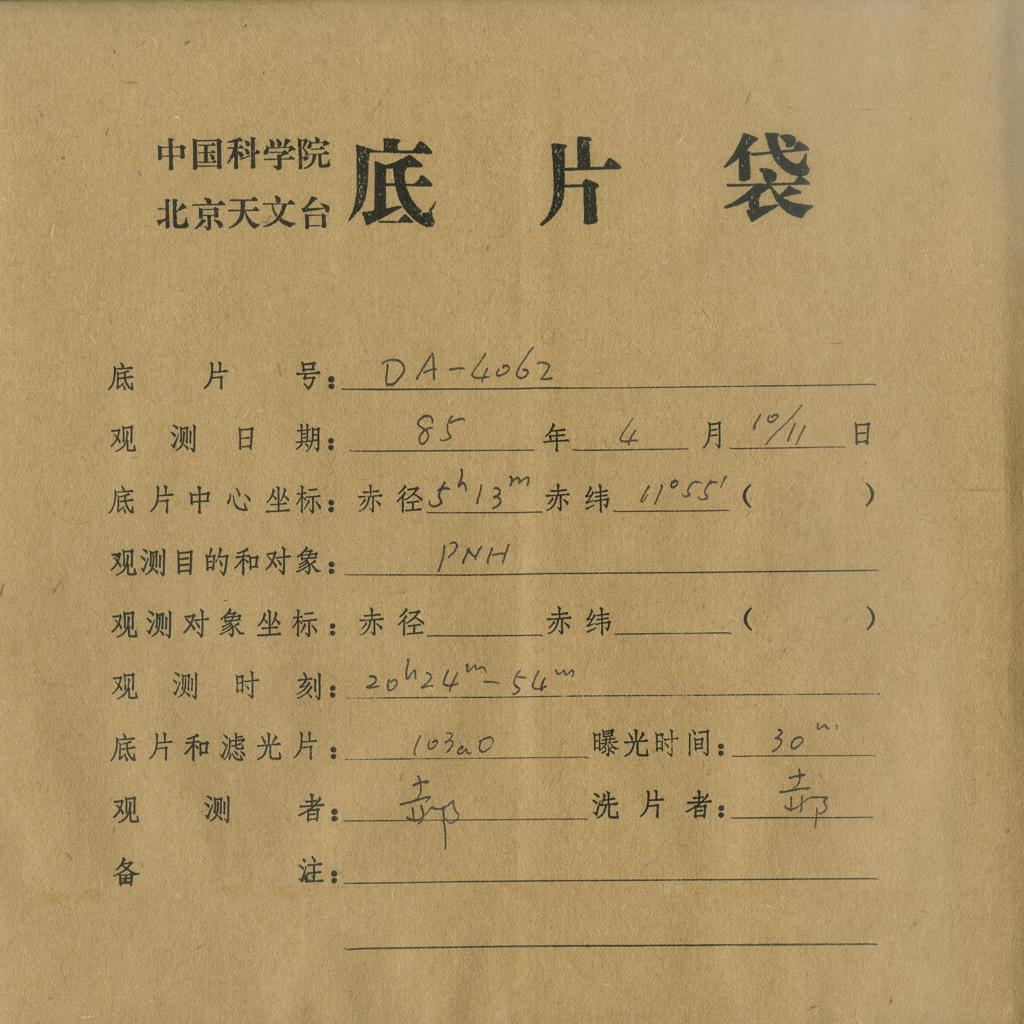 中国科学院
北京天文台 底片袋
底片号：DA-4062
观测日期：85年4月10/11日
底片中心坐标：赤径5h13m赤纬11°55′（ ）
观测目的和对象：PNH
观测对象坐标：赤径 赤纬 （ ）
观测时刻：20h24m-54m
底片和滤光片：103aO 曝光时间：30m
观测者：郝 洗片者：郝
备注：